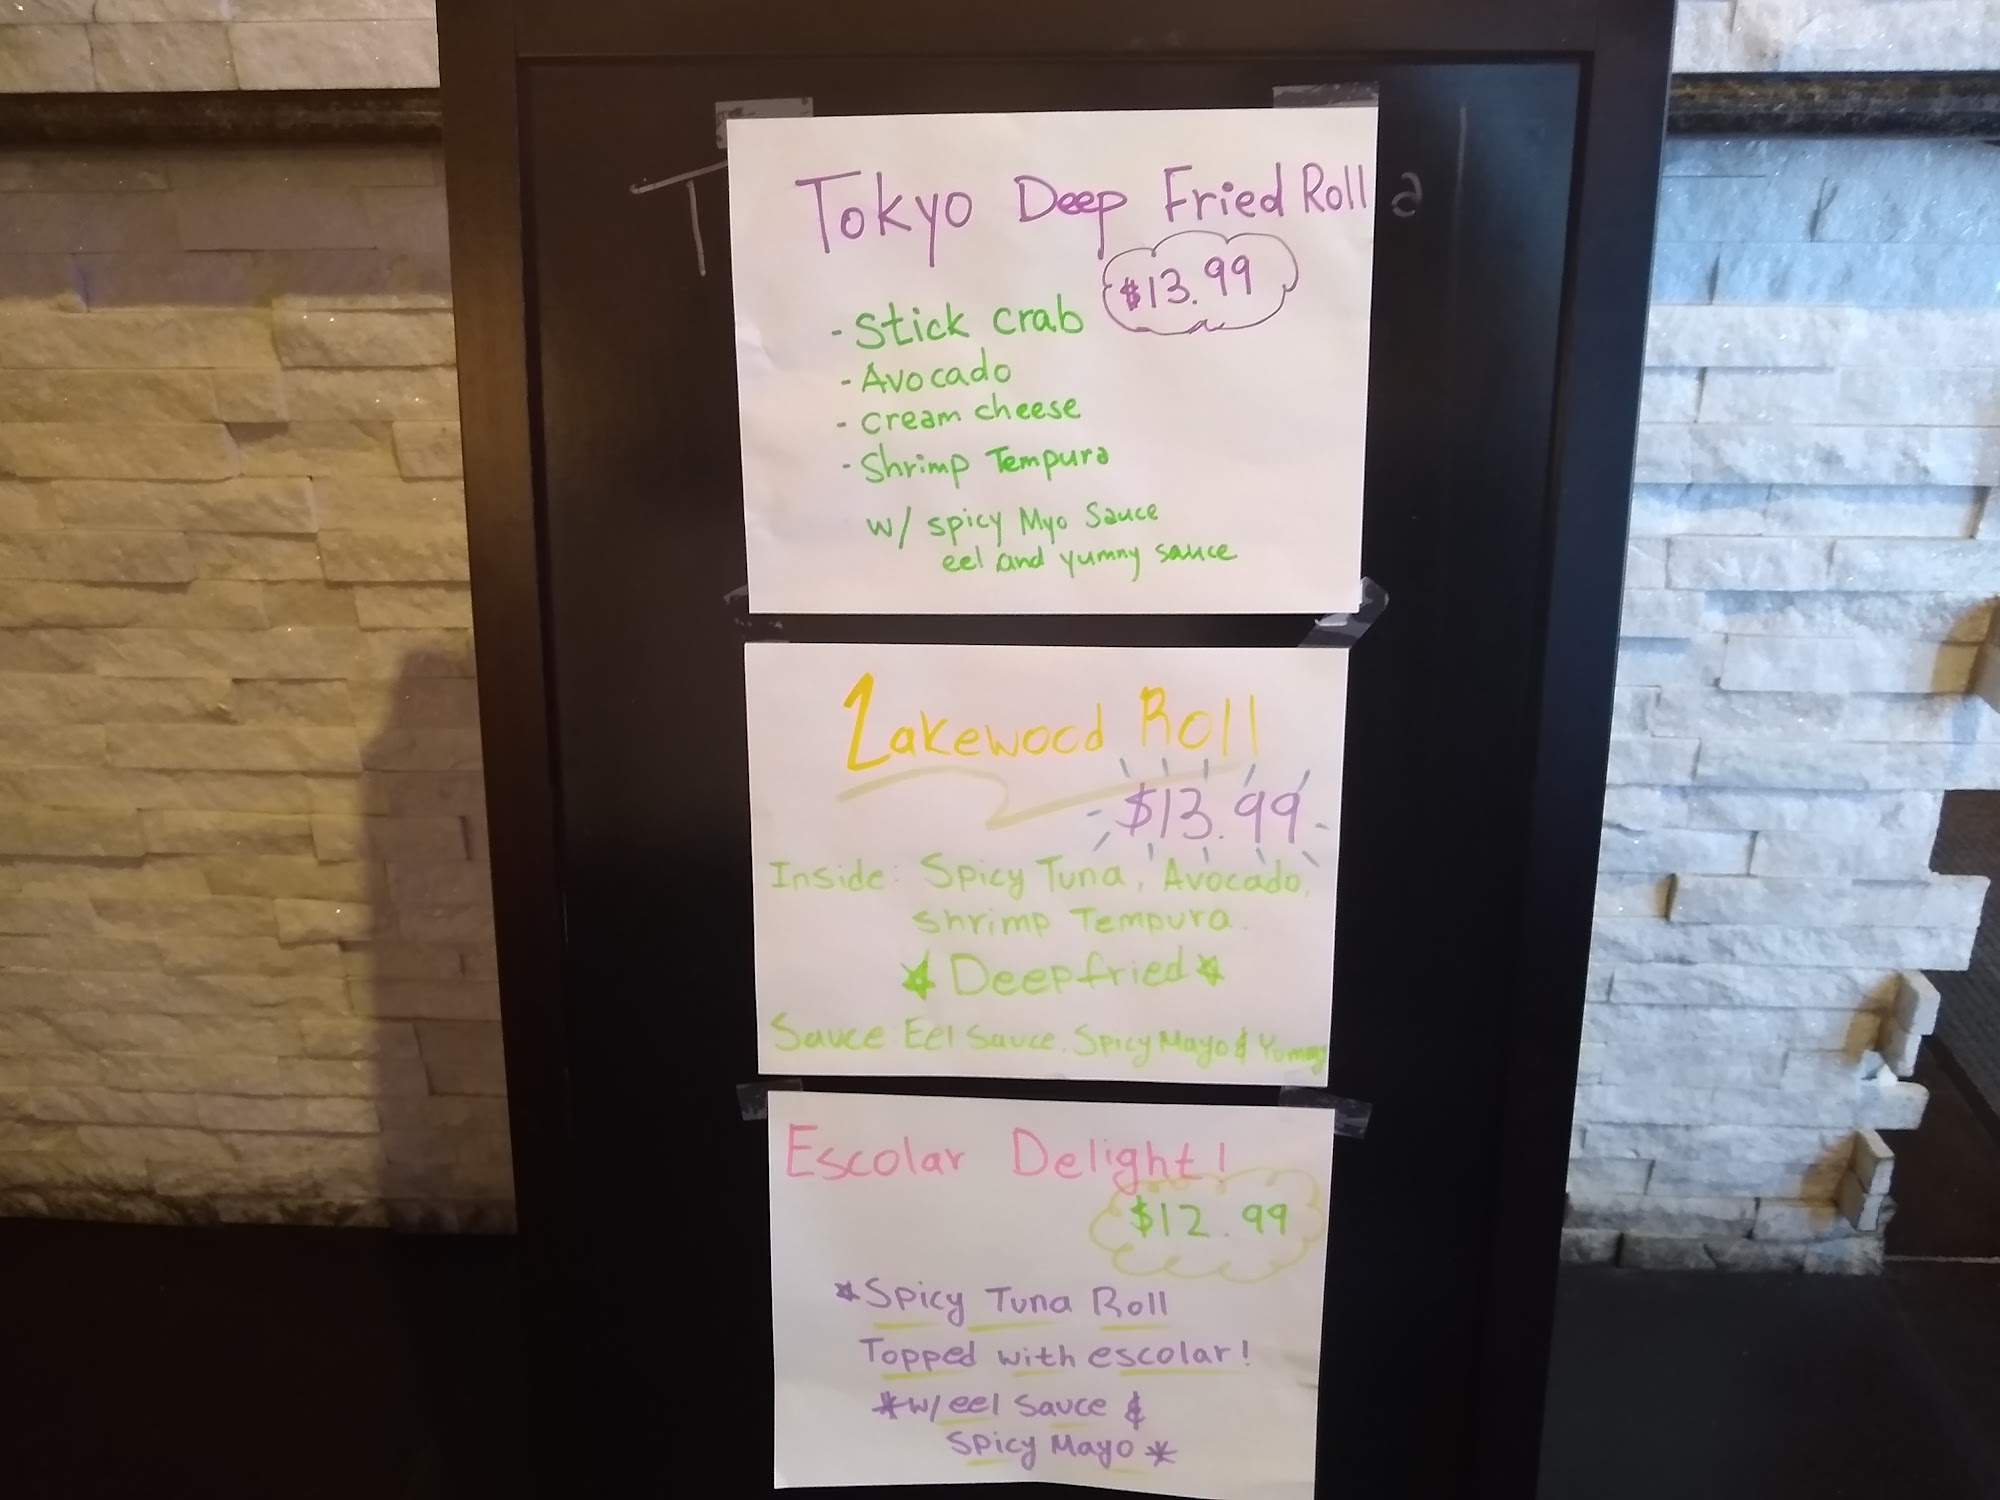 Tokyo Deep Fried Roll
$13.99
- Stick crab
- Avocado
- cream cheese
- Shrimp Tempura
w/ spicy Myo Sauce
eel and yummy sauce
Lakewood Roll
$13.99
Inside: Spicy Tuna, Avocado,
Shrimp Tempura.
Deepfried
Sauce Eel Sauce, Spicy Mayo & Yummy
Escolar Delight!
$12.99
*Spicy Tuna Roll
Topped with escolar!
*w/ eel Sauce &
Spicy Mayo *